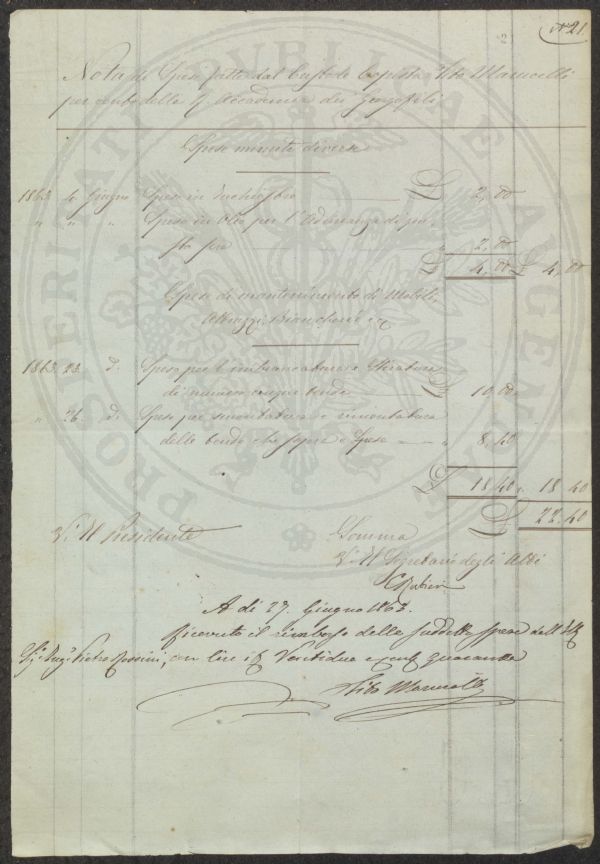 N 21.
Nota di Spese fatte dal Custode Tito Marucelli
per conto della R. Accademia dei Georgofili
Spese minute diverse
1863 4 Giugno Spese in Inchiostro £ 2,00
" " " Spese in Olio per l'Adunanza di que
sta sera " 2,00
£ 4,00 £ 4,00
Spese di mantenimento di Mobili,
Attrezzi, Biancherie
1863 23 d. Spese per l'imbiancatura e Stiratura
di numero cinque tende £ 10,00
" 26 d. Spese per smontatura e rimontatura
delle tende che sopra e Spese " 8,40
£ 18,40 " 18 40
£ 22.40
V. Il Presidente Somma
V. Il Segretario degli Atti
A di 27. Giugno 1863.
Ricevuto il rimborso delle suddette spese dall'
Sig. Pietro in lire Ventidue e cent. quaranta
Tito Marucelli
PROSPERITATI PUBLICAE AUGENDAE